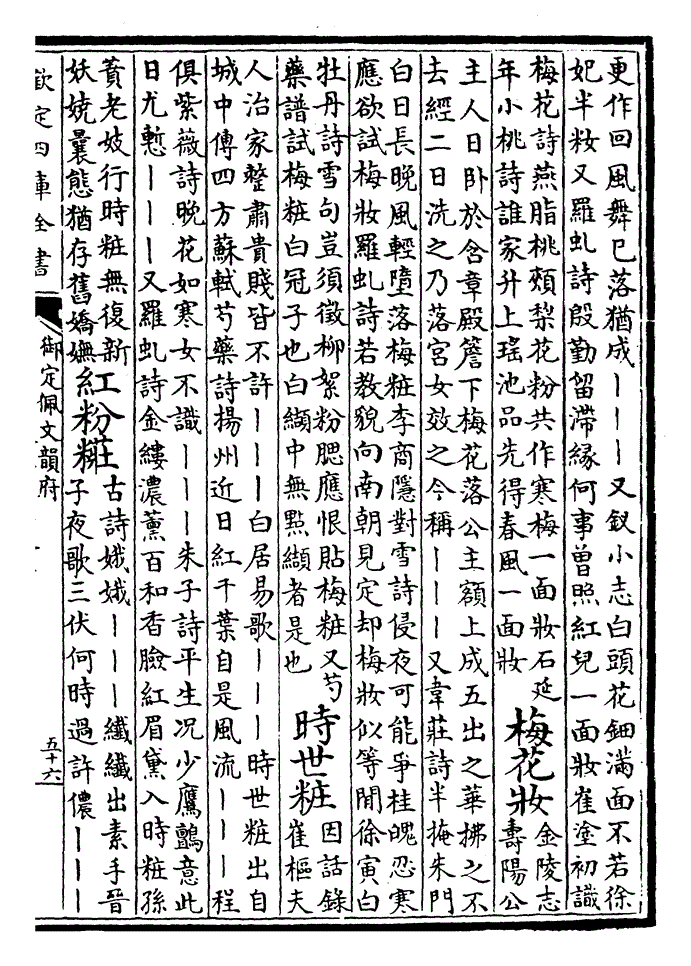 更作回風舞已落猶成｜｜｜又釵小志白頭花鈿滿面不若徐
妃半粧又羅虬詩殷勤留滯緣何事曾照紅兒一面妝崔塗初識
梅花詩燕脂桃頰梨花粉共作寒梅一面妝石延
年小桃詩誰家升上瑤池品先得春風一面妝
梅花妝
金陵志
壽陽公
主人日卧於含章殿簷下梅花落公主額上成五出之華拂之不
去經二日洗之乃落宮女效之今稱｜｜｜又韋莊詩半掩朱門
白日長晚風輕墮落梅粧李商隱對雪詩侵夜可能爭桂魄忍寒
應欲試梅妝羅虬詩若教貌向南朝見定却梅妝似等閒徐寅白
牡丹詩雪句豈須徵柳絮粉腮應恨貼梅粧又芍
藥譜試梅粧白冠子也白纈中無點纈者是也
時世粧
因話錄
崔樞夫
人治家整肅貴賤皆不許｜｜｜白居易歌｜｜｜時世粧出自
城中傳四方蘇軾芍藥詩揚州近日紅千葉自是風流｜｜｜程
俱紫薇詩晚花如寒女不識｜｜｜朱子詩平生况少鷹鸇意此
日尤慙｜｜｜又羅虬詩金縷濃薰百和香臉紅眉黛入時粧孫
蕡老妓行時粧無復新
妖嬈曩態猶存舊嬌嫵
紅粉粧
古詩娥娥｜｜｜纖纖出素手晉
子夜歌三伏何時過許儂｜｜｜
欽定四庫全書
御定佩文韻府
五十六